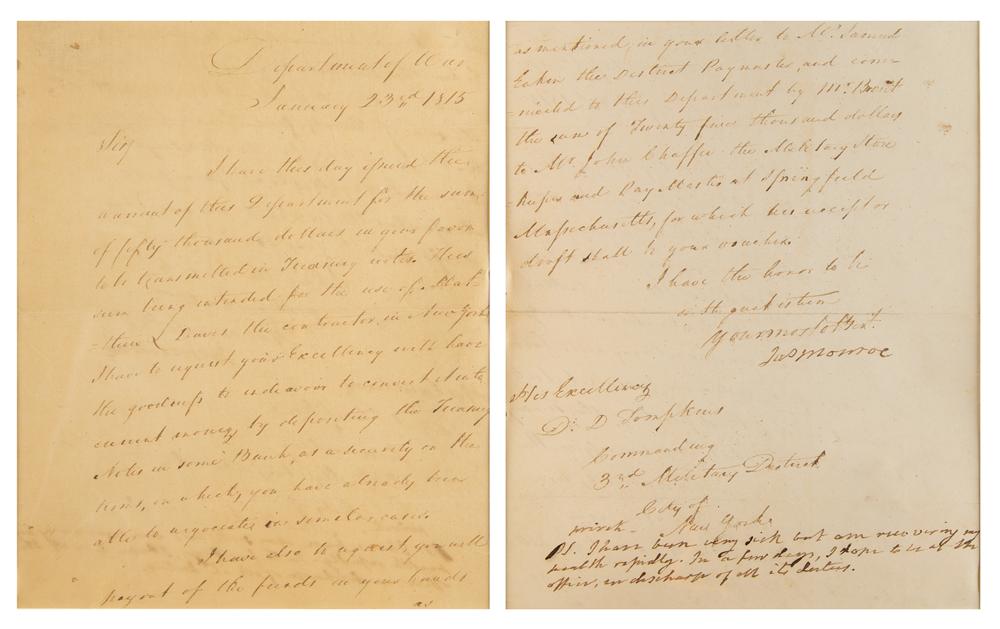 Department of War
January 23rd 1815
Sir,
I have this day issued the
warrant of this Department for the sum
of fifty thousand dollars in your favor
to be transmitted in Treasury notes. This
sum being intended for the use of Mat-
-thew L Davis the contractor, in New York
I have to request your Excellency will have
the goodness to endeavor to convert it into
current money, by depositing the Treasury
Notes in some Bank, as a security on the
terms, on which, you have already been
able to negociate in similar cases.
I have also to request, you will
pay out of the funds in your hands
as
as mentioned, in your letter to Mr. Samuel
Eakin the District Paymaster, and comm-
-nicated to this Department by Mr. Brent
the sum of Twenty five thousand dollars
to Mr. John Chaffee the Military Store
Keeper and Pay Master at Springfield
Massachusetts, for which his receipt or
draft shall be your voucher.
I have the honor to be
with great esteem
Your most obt. Servt.
Jas Monroe
His Excellency
D. D Tompkins
Commanding
3rd Military District
City of
New York
PS. I have been very sick but am recovering my
health rapidly. In a few days, I hope to be at the
office, in discharge of all its duties.